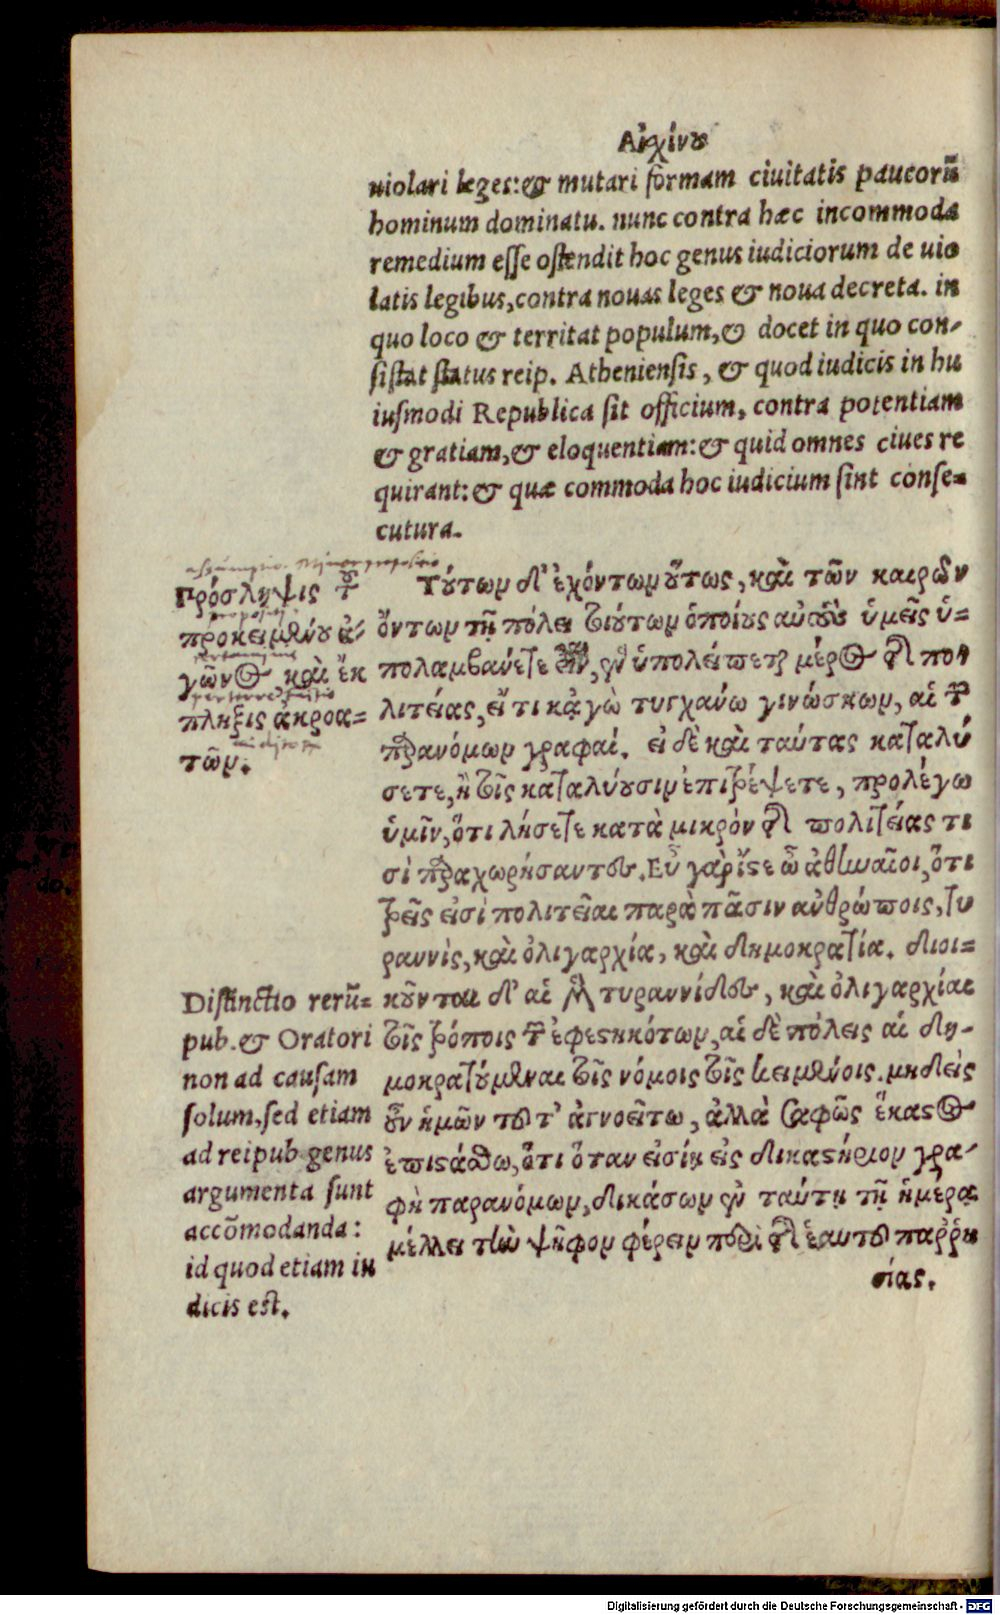 Αἰχίνου
uiolari leges:& mutari formam ciuitatis paucorũ
hominum dominatu. nunc contra hæc incommoda
remedium esse ostendit hoc genus iudiciorum de uio
latis legibus,contra nouas leges & noua decreta. in
quo loco & territat populum,& docet in quo con-
sistat status reip. Atheniensis, & quod iudicis in hu
iusmodi Republica sit officium, contra potentiam
& gratiam,& eloquentiam:& quid omnes ciues re
quirant:& quæ commoda hoc iudicium sint conse-
cutura.
Πρόσληψις τοῦ
προκειμένου ἀ-
γῶνος καὶ ἔκ
πληξις ἀκροα-
τῶν.
Τούτων δ' ἐχόντων οὕτως, καὶ τῶν καιρῶν
ὄντων τῇ πόλει τοιούτων ὁποίους αὐτοὺς ὑμεῖς ὑ-
πολαμβάνετε εἶναι, ἓν ὑπολείπεται μέρος τῆς πο
λιτείας, εἴ τι κἀγὼ τυγχάνω γινώσκων, αἱ τῶν
παρανόμων γραφαί. εἰ δὲ καὶ ταύτας καταλύ
σετε, ἢ τοῖς καταλύουσιν ἐπιτρέψετε, προλέγω
ὑμῖν, ὅτι λήσετε κατὰ μικρὸν τῆς πολιτείας τι
σὶ παραχωρήσαντες. Εὖ γὰρ ἴστε ὦ ἀθηναῖοι, ὅτι
τρεῖς εἰσὶ πολιτεῖαι παρὰ πᾶσιν ἀνθρώποις, τυ
ραννὶς, καὶ ὀλιγαρχία, καὶ δημοκρατία. διοι-
κοῦνται δ' αἱ μὲν τυραννίδες, καὶ ὀλιγαρχίαι
τοῖς τρόποις τῶν ἐφεστηκότων, αἱ δὲ πόλεις αἱ δη-
μοκρατούμεναι τοῖς νόμοις τοῖς κειμένοις. μηδεὶς
οὖν ἡμῶν τοῦτ' ἀγνοείτω, ἀλλὰ σαφῶς ἕκαστος
ἐπιστάσθω, ὅτι ὅταν εἰσίῃ εἰς δικαστήριον γρα-
φὴ παρανόμων, δικάσων ἐν ταύτῃ τῇ ἡμέρᾳ
μέλλει τὴν ψῆφον φέρειν περὶ τῆς ἑαυτοῦ παῤῥη
σίας.
Distinctio rerũ-
pub.& Oratori
non ad causam
solum,sed etiam
ad reipub genus
argumenta sunt
accõmodanda:
id quod etiam iu
dicis est.
Digitalisierung gefördert durch die Deutsche Forschungsgemeinschaft - DFG